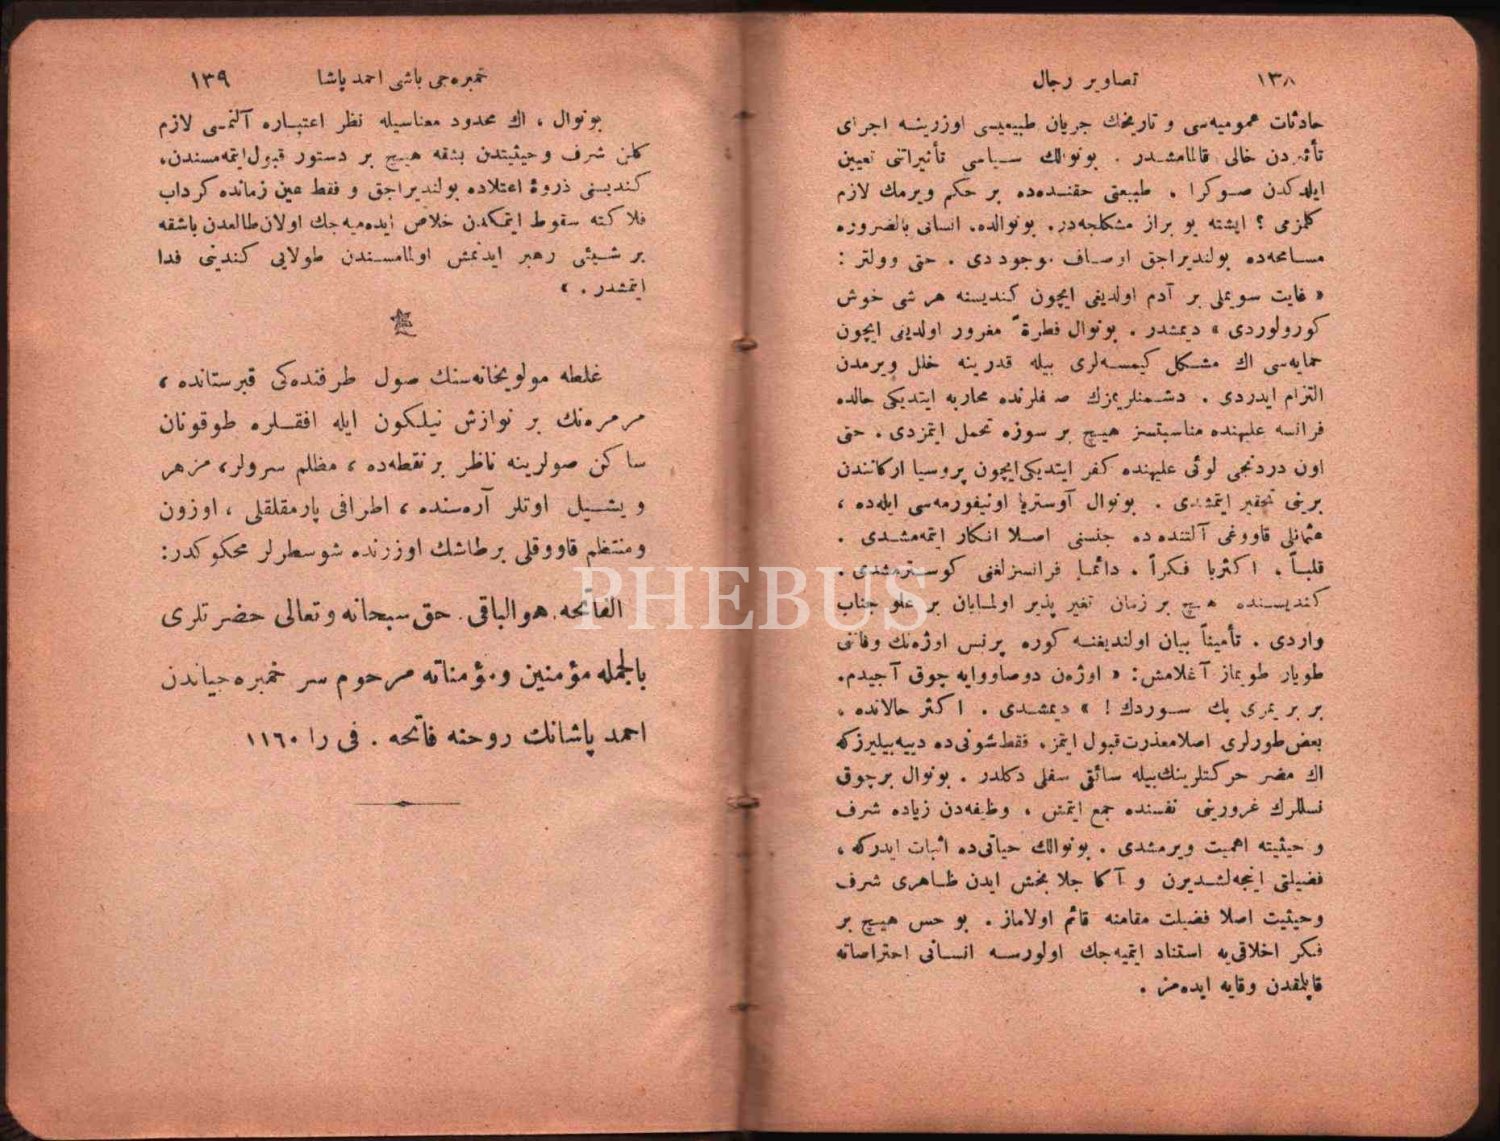 ١٣٨
تصاویر رجال
حادثات عمومیه‌سی و تاریخك جریان طبیعیسی اوزرینه اجرای
تأثیردن خالی قالمامشدر . بونوالك سیاسی تأثیراتنی تعیین
ایلدکدن صوکرا . طبیعتی حقنده‌ده بر حکم ویرمك لازم
کلزمی ؟ ایشته بو براز مشکلجه‌در. بونوالده، انسانی بالضروره
مسامحه‌ده بولندیراجق اوصاف موجوددی . حتی وولتر :
« غایت سویملی بر آدم اولدیغی ایچون کندیسنه هر شی خوش
کورولوردی » دیمشدر . بونوال فطرةً مغرور اولدیغی ایچون
حمایه‌سی اك مشکل کیمسه‌لری بیله قدرینه خلل ویرمدن
التزام ایدردی . دشمنلریمزك صفلرنده محاربه ایتدیکی حالده
فرانسه علیهنده مناسبتسز هیچ بر سوزه تحمل ایتمزدی . حتی
اون دردنجی لوئی علیهنده کفر ایتدیکی‌ایچون پروسیا ارکانندن
برینی تحقیر ایتمشدی . بونوال آوستریا اونیفورمه‌سی ایله‌ده ،
عثمانلی قاووغی آلتنده ده جنسنی اصلا انکار ایتمه‌مشدی .
قلباً . اکثریا فکراً . دائما فرانسزلغنی کوسترمشدی .
کندیسنده هیچ بر زمان تغیر پذیر اولمایان بر علو جناب
واردی . تأمیناً بیان اولندیغنه کوره پرنس اوژه‌نك وفاتنی
طویار طویماز آغلامش: « اوژه‌ن دوصاووایه چوق آجیدم.
بر بریمزی پك سوردك ! » دیمشدی . اکثر حالانده ،
بعض‌طورلری اصلامعذرت‌قبول ایتمز. فقط‌شونی‌ده دییه‌بیلیرزکه
اك مضر حرکتلرینك‌بیله سائقی سفلی دکلدر . بونوال برچوق
نسللرك غرورینی نفسنده جمع ایتمش ، وظیفه‌دن زیاده شرف
و حیثیته اهمیت ویرمشدی . بونوالك حیاتی‌ده اثبات ایدرکه ،
فضیلتی اینجه‌لشدیرن و آکا جلا بخش ایدن ظاهری شرف
وحیثیت اصلا فضیلت مقامنه قائم اولاماز . بو حس هیچ بر
فکر اخلاقی‌یه استناد ایتمیه‌جك اولورسه انسانی احتراصاته
قاپلمقدن وقایه ایده‌مز .
خمبره‌جی باشی احمد پاشا
١٣٩
بونوال ، اك محدود معناسیله نظر اعتباره آلنمسی لازم
کلن شرف وحیثیتدن بشقه هیچ بر دستور قبول‌ایتمه‌مسندن،
کندیسنی ذروۀ اعتلاده بولندیراجق و فقط عین زمانده کرداب
فلاکته سقوط ایتمکدن خلاص ایده‌میه‌جك اولان‌طالعدن باشقه
بر شیئی رهبر ایدنمش اولمامسندن طولایی کندینی فدا
ایتمشدر . »
غلطه مولویخانه‌سنك صول طرفنده‌کی قبرستانده ،
مرمره‌نك بر نوازش نیلکون ایله افقلره طوقونان
ساکن صولرینه ناظر برنقطه‌ده ، مظلم سرولر، مزهر
و یشیل اوتلر آره‌سنده ، اطرافی پارمقلقلی ، اوزون
ومنتظم قاووقلی برطاشك اوزرنده شوسطرلر محکوکدر:
الفاتحه. هوالباقی. حق سبحانه وتعالی حضرتلری
بالجمله مؤمنین ومؤمناته مرحوم سر خمبره‌جیاندن
احمد پاشانك روحنه فاتحه . فی را ١١٦٠
PHEBUS